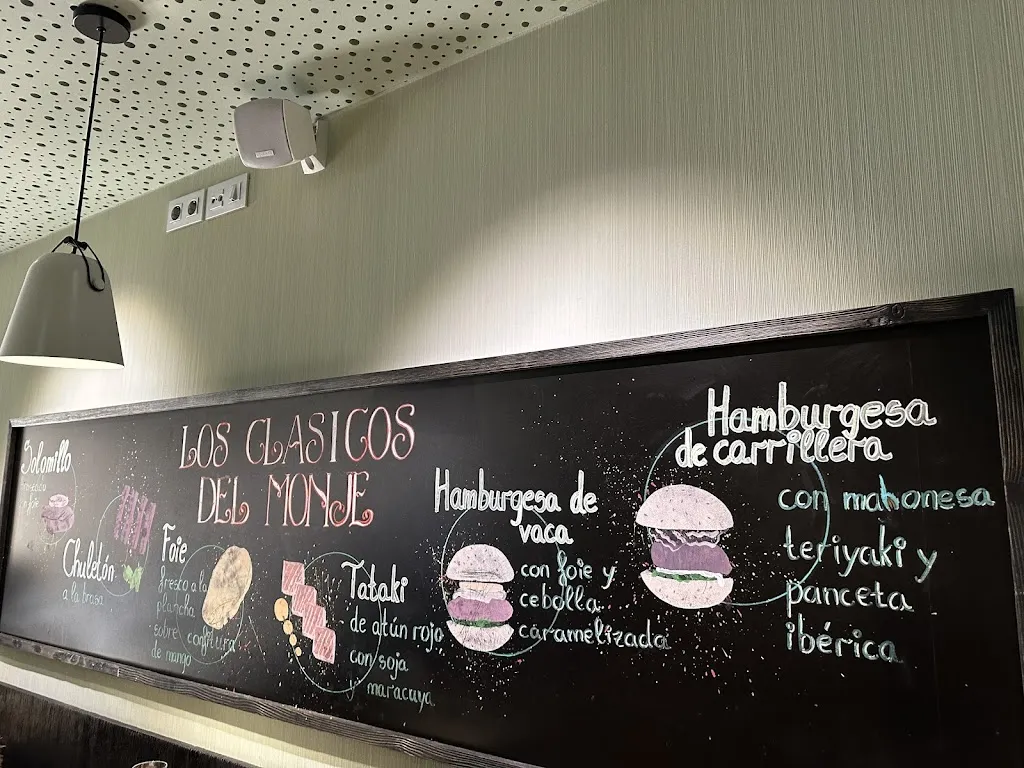 LOS CLASICOS
DEL MONJE
Solomillo
foie
Chuletón
a la brasa
Foie
fresco a la
plancha
sobre confitura
de mango
Tataki
de atún rojo
con soja
y maracuya
Hamburgesa de
vaca
con foie y
cebolla
caramelizada
Hamburgesa
de carrillera
con mahonesa
teriyaki y
panceta
ibérica